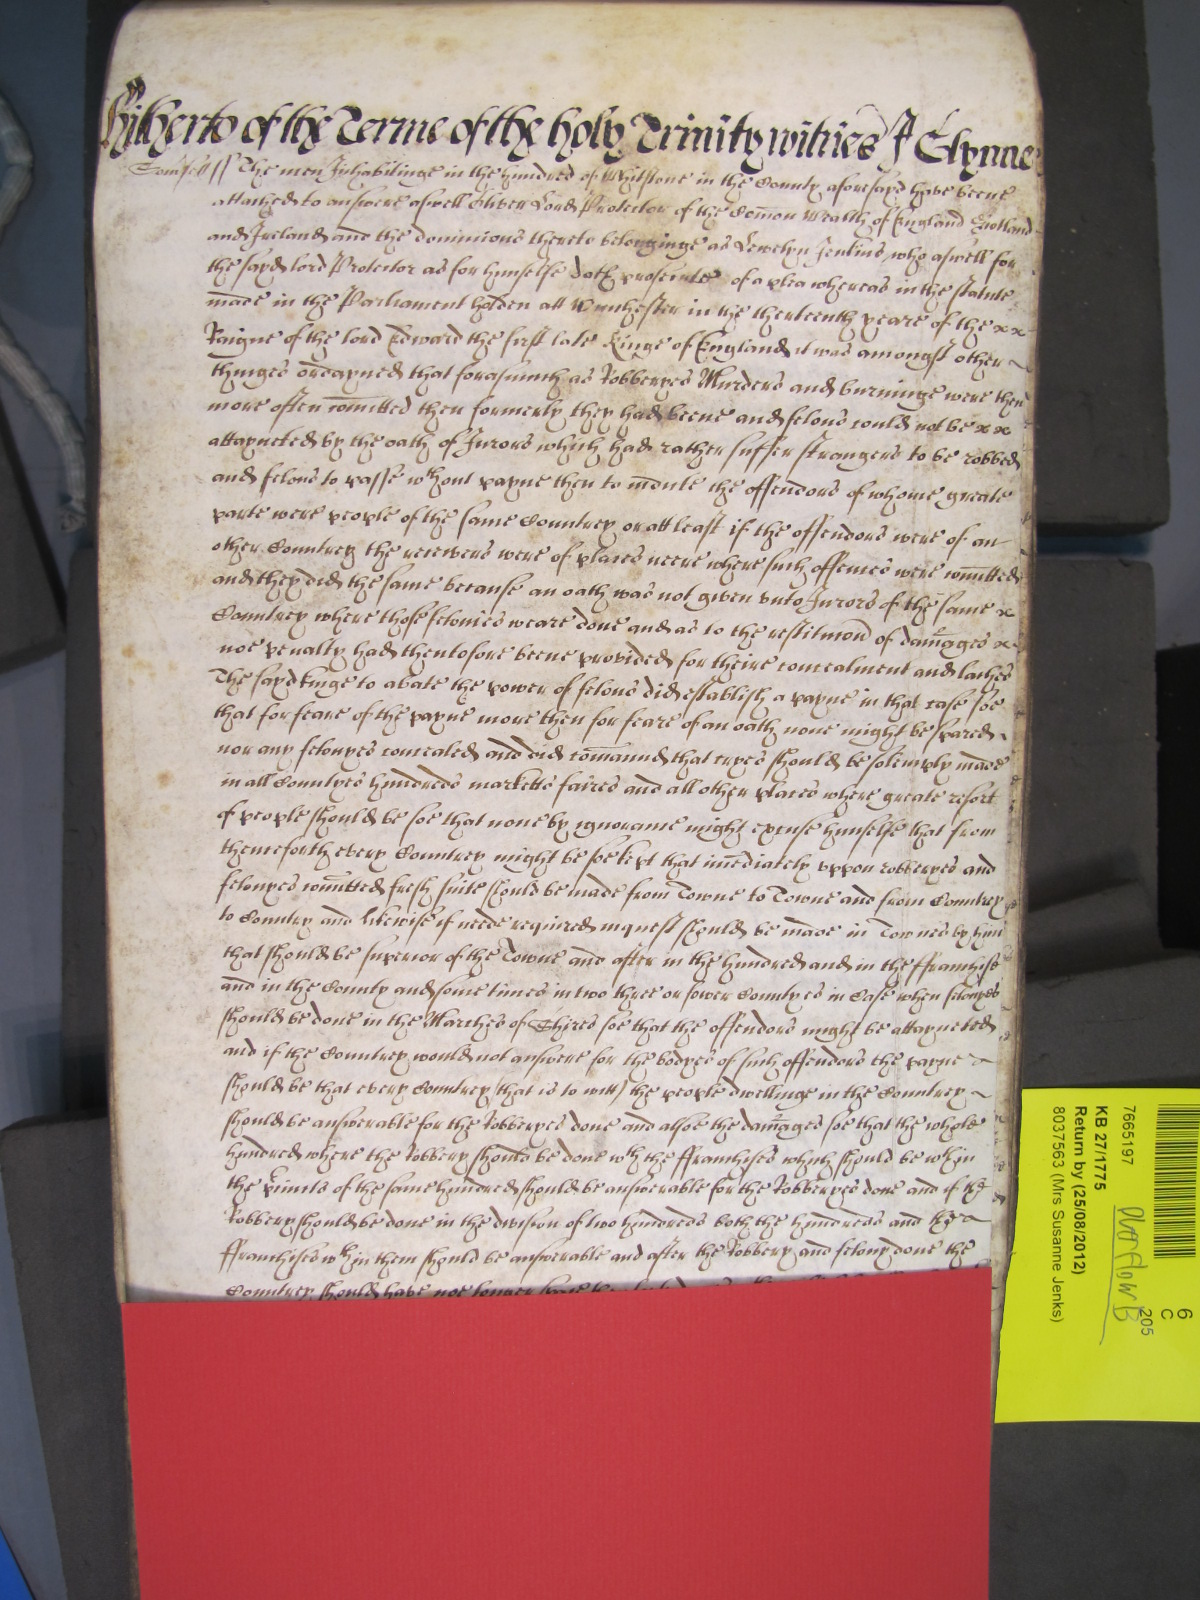 Hitherto of the Terme of the holy Trinity witnes J Glynne
Somset ss The men Inhabitinge in the hundred of Whitstone in the County aforesayd have beene
attached to answere aswell Oliver Lord Protector of the Com̄on Wealth of England Scotland
and Ireland and the dominions thereto belonginge as Lewelyn Jenkins who aswell for
the sayd lord Protector as for himselfe doth prosecute of a plea whereas in the statute
made in the Parliament holden att Winchester in the thirteenth yeare of the x x
Raigne of the lord Edward the first late Kinge of England it was amongst other
thinges ordayned that forasmuch as Robberyes Murders and burninge were then
more often com̄itted then formerly they had beene and felons could not be x x
attaynted by the oath of Jurors which had rather suffer strangers to be robbed
and felons to passe wthout payne then to indite the offendors of whome greate
parte were people of the same Countrey or att least if the offendors were of an
other Countrey the receivers were of places neere where such offences were com̄itted
and they did the same because an oath was not given unto Jurors of the same x
Countrey where those felonies weare done and as to the restitucon of dam̄ages x
noe penalty had thentofore beene provided for theire concealment and laches
The sayd kinge to abate the power of felons did establish a payne in that case soe
that for feare of the payne more then for feare of an oath none might be spared
nor any felonyes concealed and did com̄aund that cryes should be solemply made
in all Countyes hundreds marketts faires and all other places where greate resort
of people should be soe that none by ignorance might excuse himselfe that from
thenceforth every Countrey might be soe kept that im̄ediately uppon robberyes and
felonyes com̄itted fresh suite should be made from Towne to Towne and from Countrey
to Country and likewise if neede required inquest should be made in Townes by him
that should be superior of the Towne and after in the hundred and in the ffranchise
and in the County and some times in two three or fower Countyes in Case when felonyes
should be done in the Marches of Shires soe that the offendors might be attaynted
and if the Countrey would not answere for the bodyes of such offendors the payne
should be that every Countrey (that is to witt) the people dwellinge in the Countrey
should be answerable for the Robberyes done and alsoe the dam̄ages soe that the whole
hundred where the Robbery should be done wth the ffranchises which should be wthin
the p̄cincts of the same hundred should be answerable for the Robberyes done and if the
Robbery should be done in the division of two hundreds both the hundreds and the
ffranchises wthin them should be answerable and after the Robbery and felony done the
Countrey should have noe longer space
7665197
KB 27/1775
Return by (25/08/2012)
8037563 (Mrs Susanne Jenks)
6
C
205